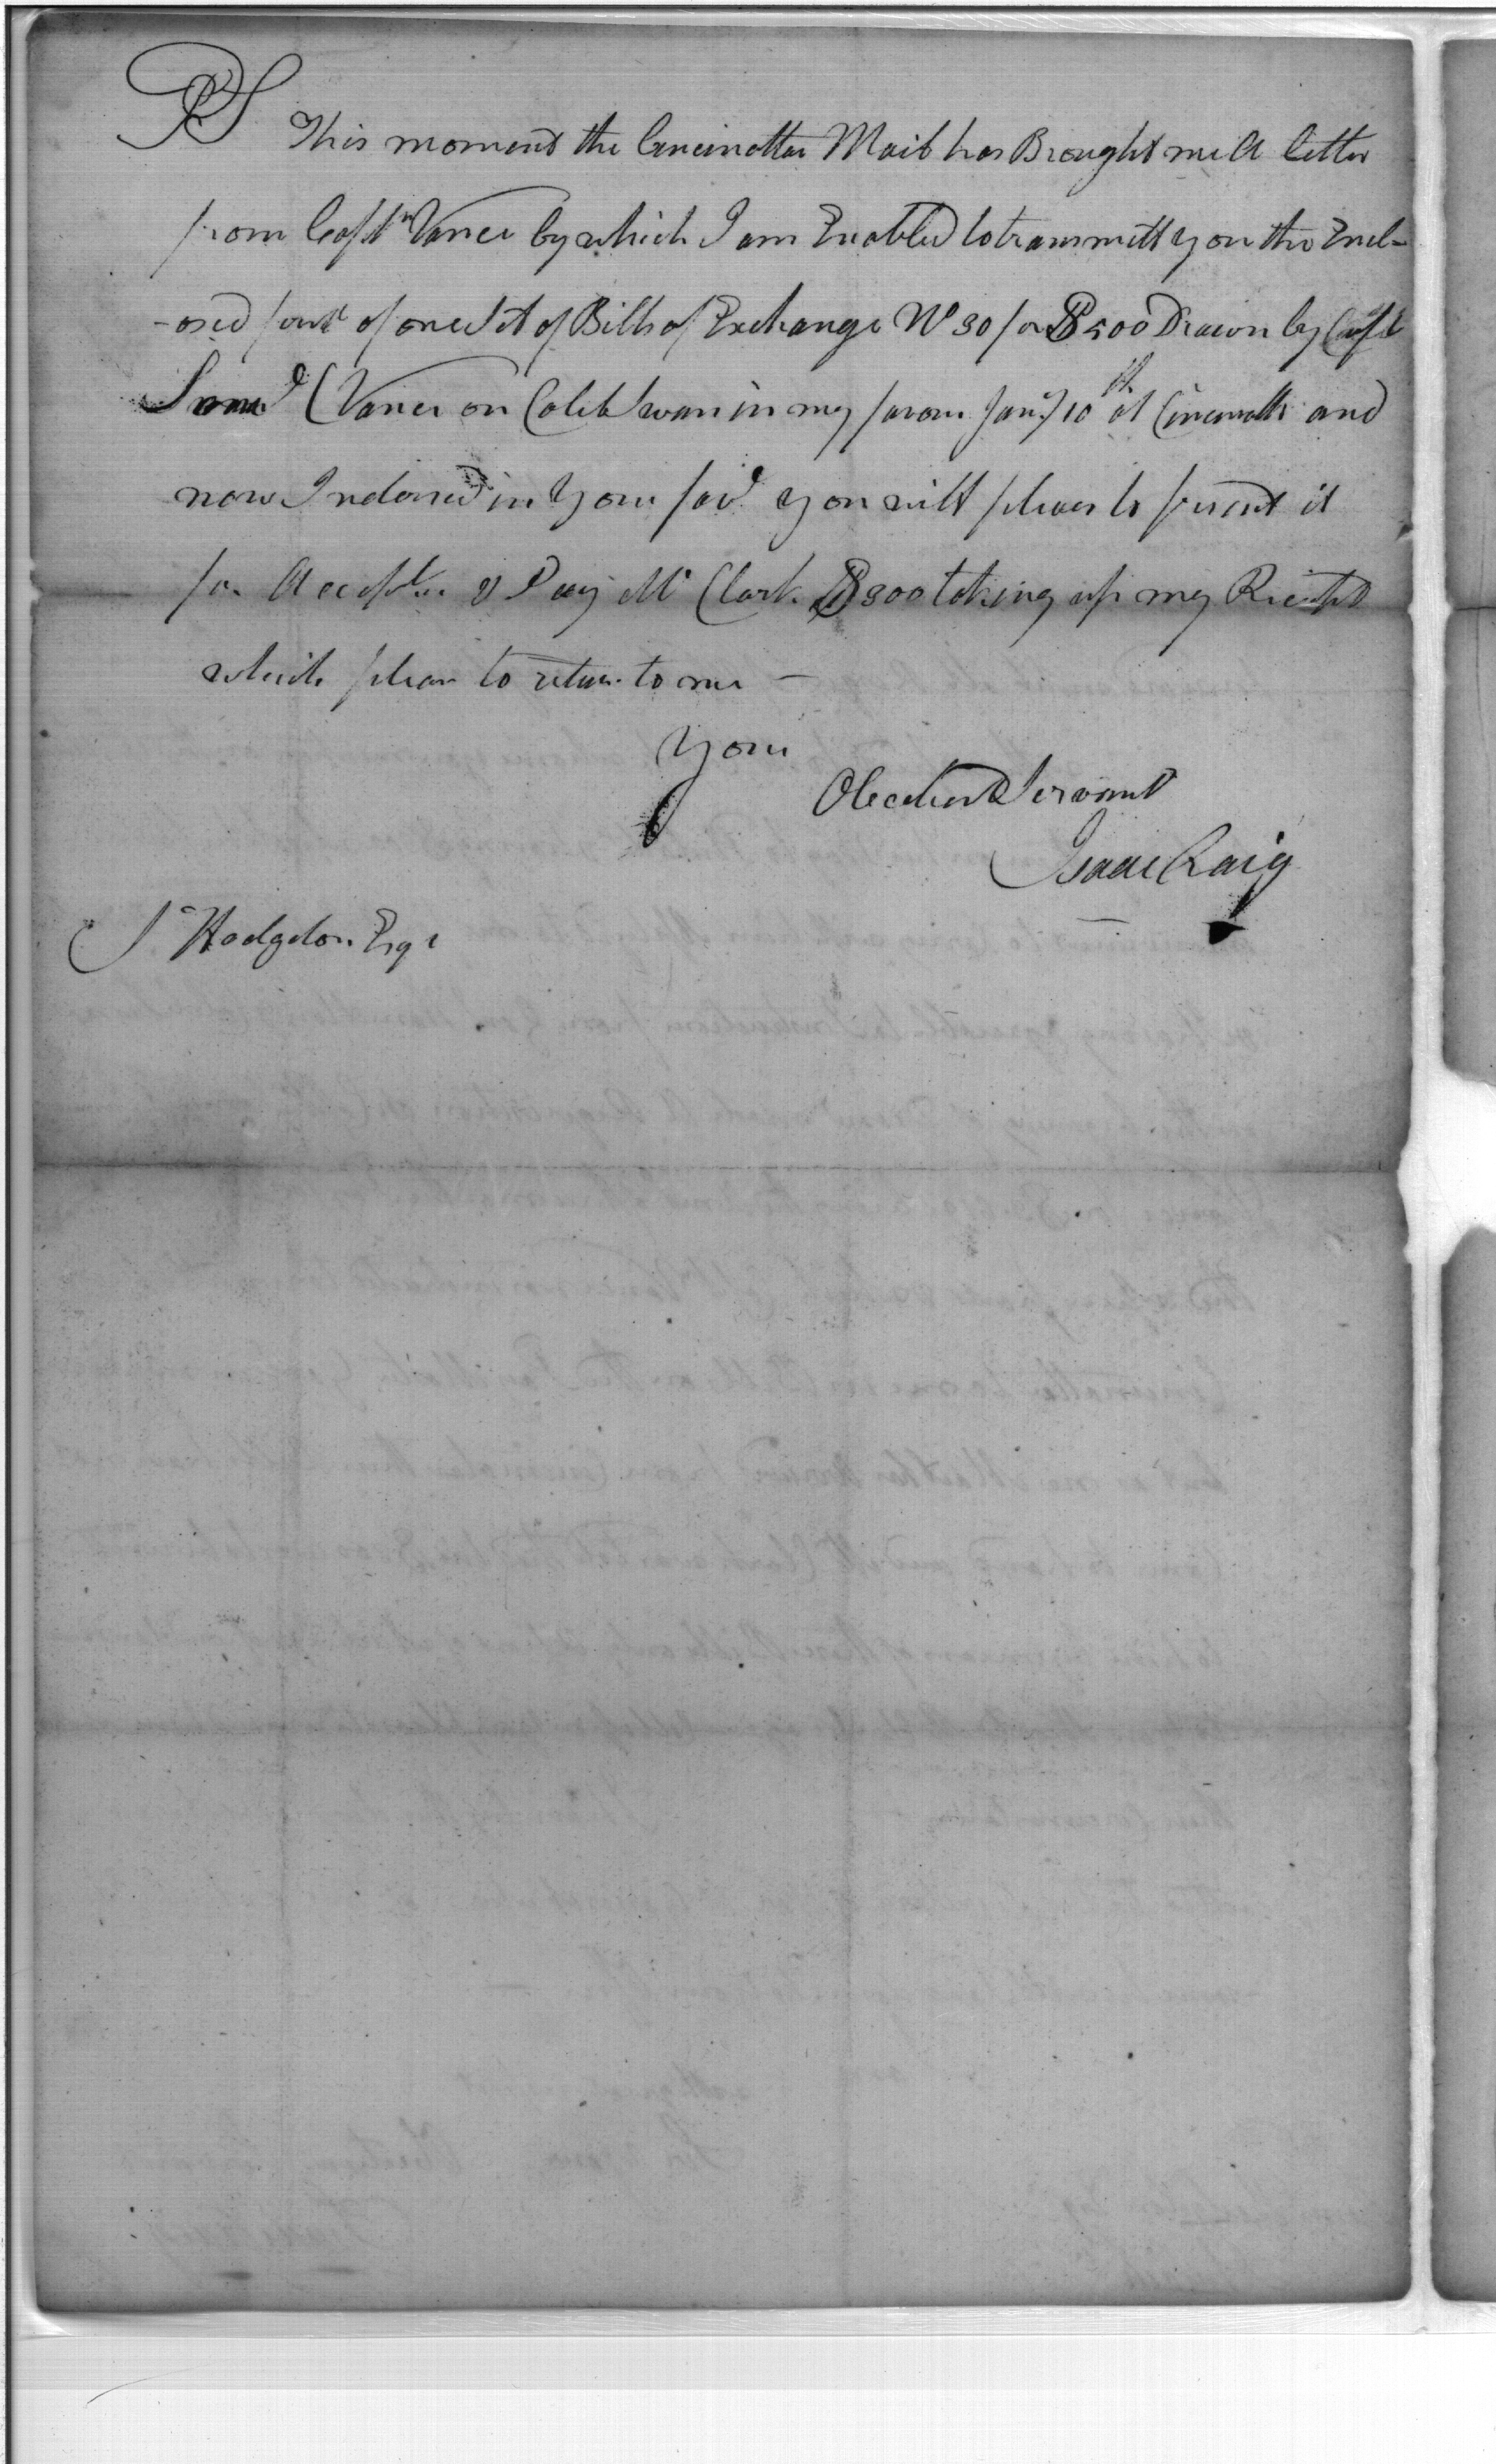 PS This moment the Cincinattia Mail has Brought me A letter
from Captn Vance by which I am Enabled to transmitt you the Encl-
-osed first of one Set of Bills of Exchange No 30 for D 500 Drawn by Capt
Saml C Vance on Caleb Swan in my favour Jany 10th at Cincinatti and
now Indorsed in Your favr you will please to present it
for Accept.ce & Pay Mr Clark D 300 taking up my Reciept
which please to return to me —
Your
Obedient Servant
Isaac Craig
S Hodgdon Esqr